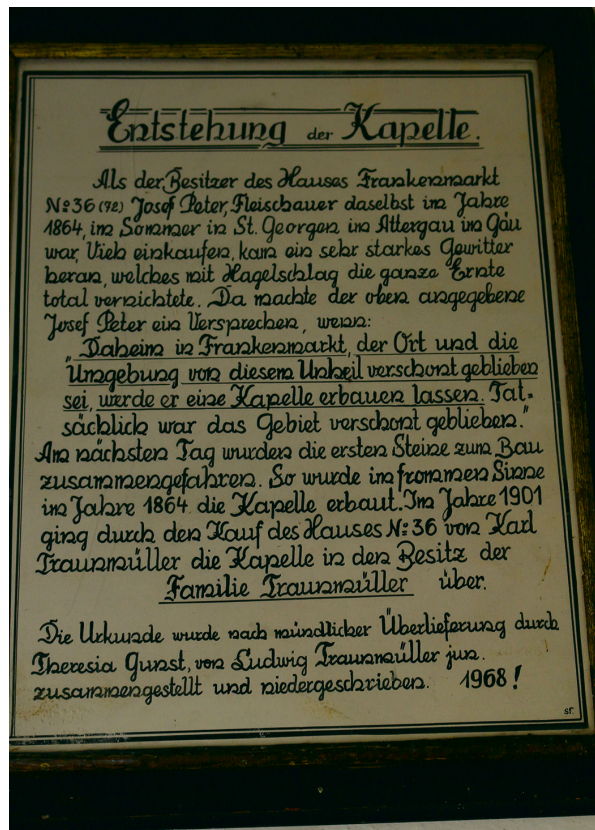 Entstehung der Kapelle.
Als der Besitzer des Hauses Frankenmarkt
No 36 (72) Josef Peter, Fleischauer daselbst im Jahre
1864, im Sommer in St. Georgen im Attergau im Gäu
war, Vieh einkaufen, kam ein sehr starkes Gewitter
heran, welches mit Hagelschlag die ganze Ernte
total vernichtete. Da machte der oben angegebene
Josef Peter ein Versprechen, wenn:
„Daheim in Frankenmarkt, der Ort und die
Umgebung von diesem Unheil verschont geblieben
sei, werde er eine Kapelle erbauen lassen. Tat=
sächlich war das Gebiet verschont geblieben."
Am nächsten Tag wurden die ersten Steine zum Bau
zusammengefahren. So wurde im frommen Sinne
im Jahre 1864 die Kapelle erbaut. Im Jahre 1901
ging durch den Kauf des Hauses No 36 von Karl
Traunmüller die Kapelle in den Besitz der
Familie Traunmüller über.
Die Urkunde wurde nach mündlicher Überlieferung durch
Theresia Gunst, von Ludwig Traunmüller jun.
zusammengestellt und niedergeschrieben. 1968!
sf.